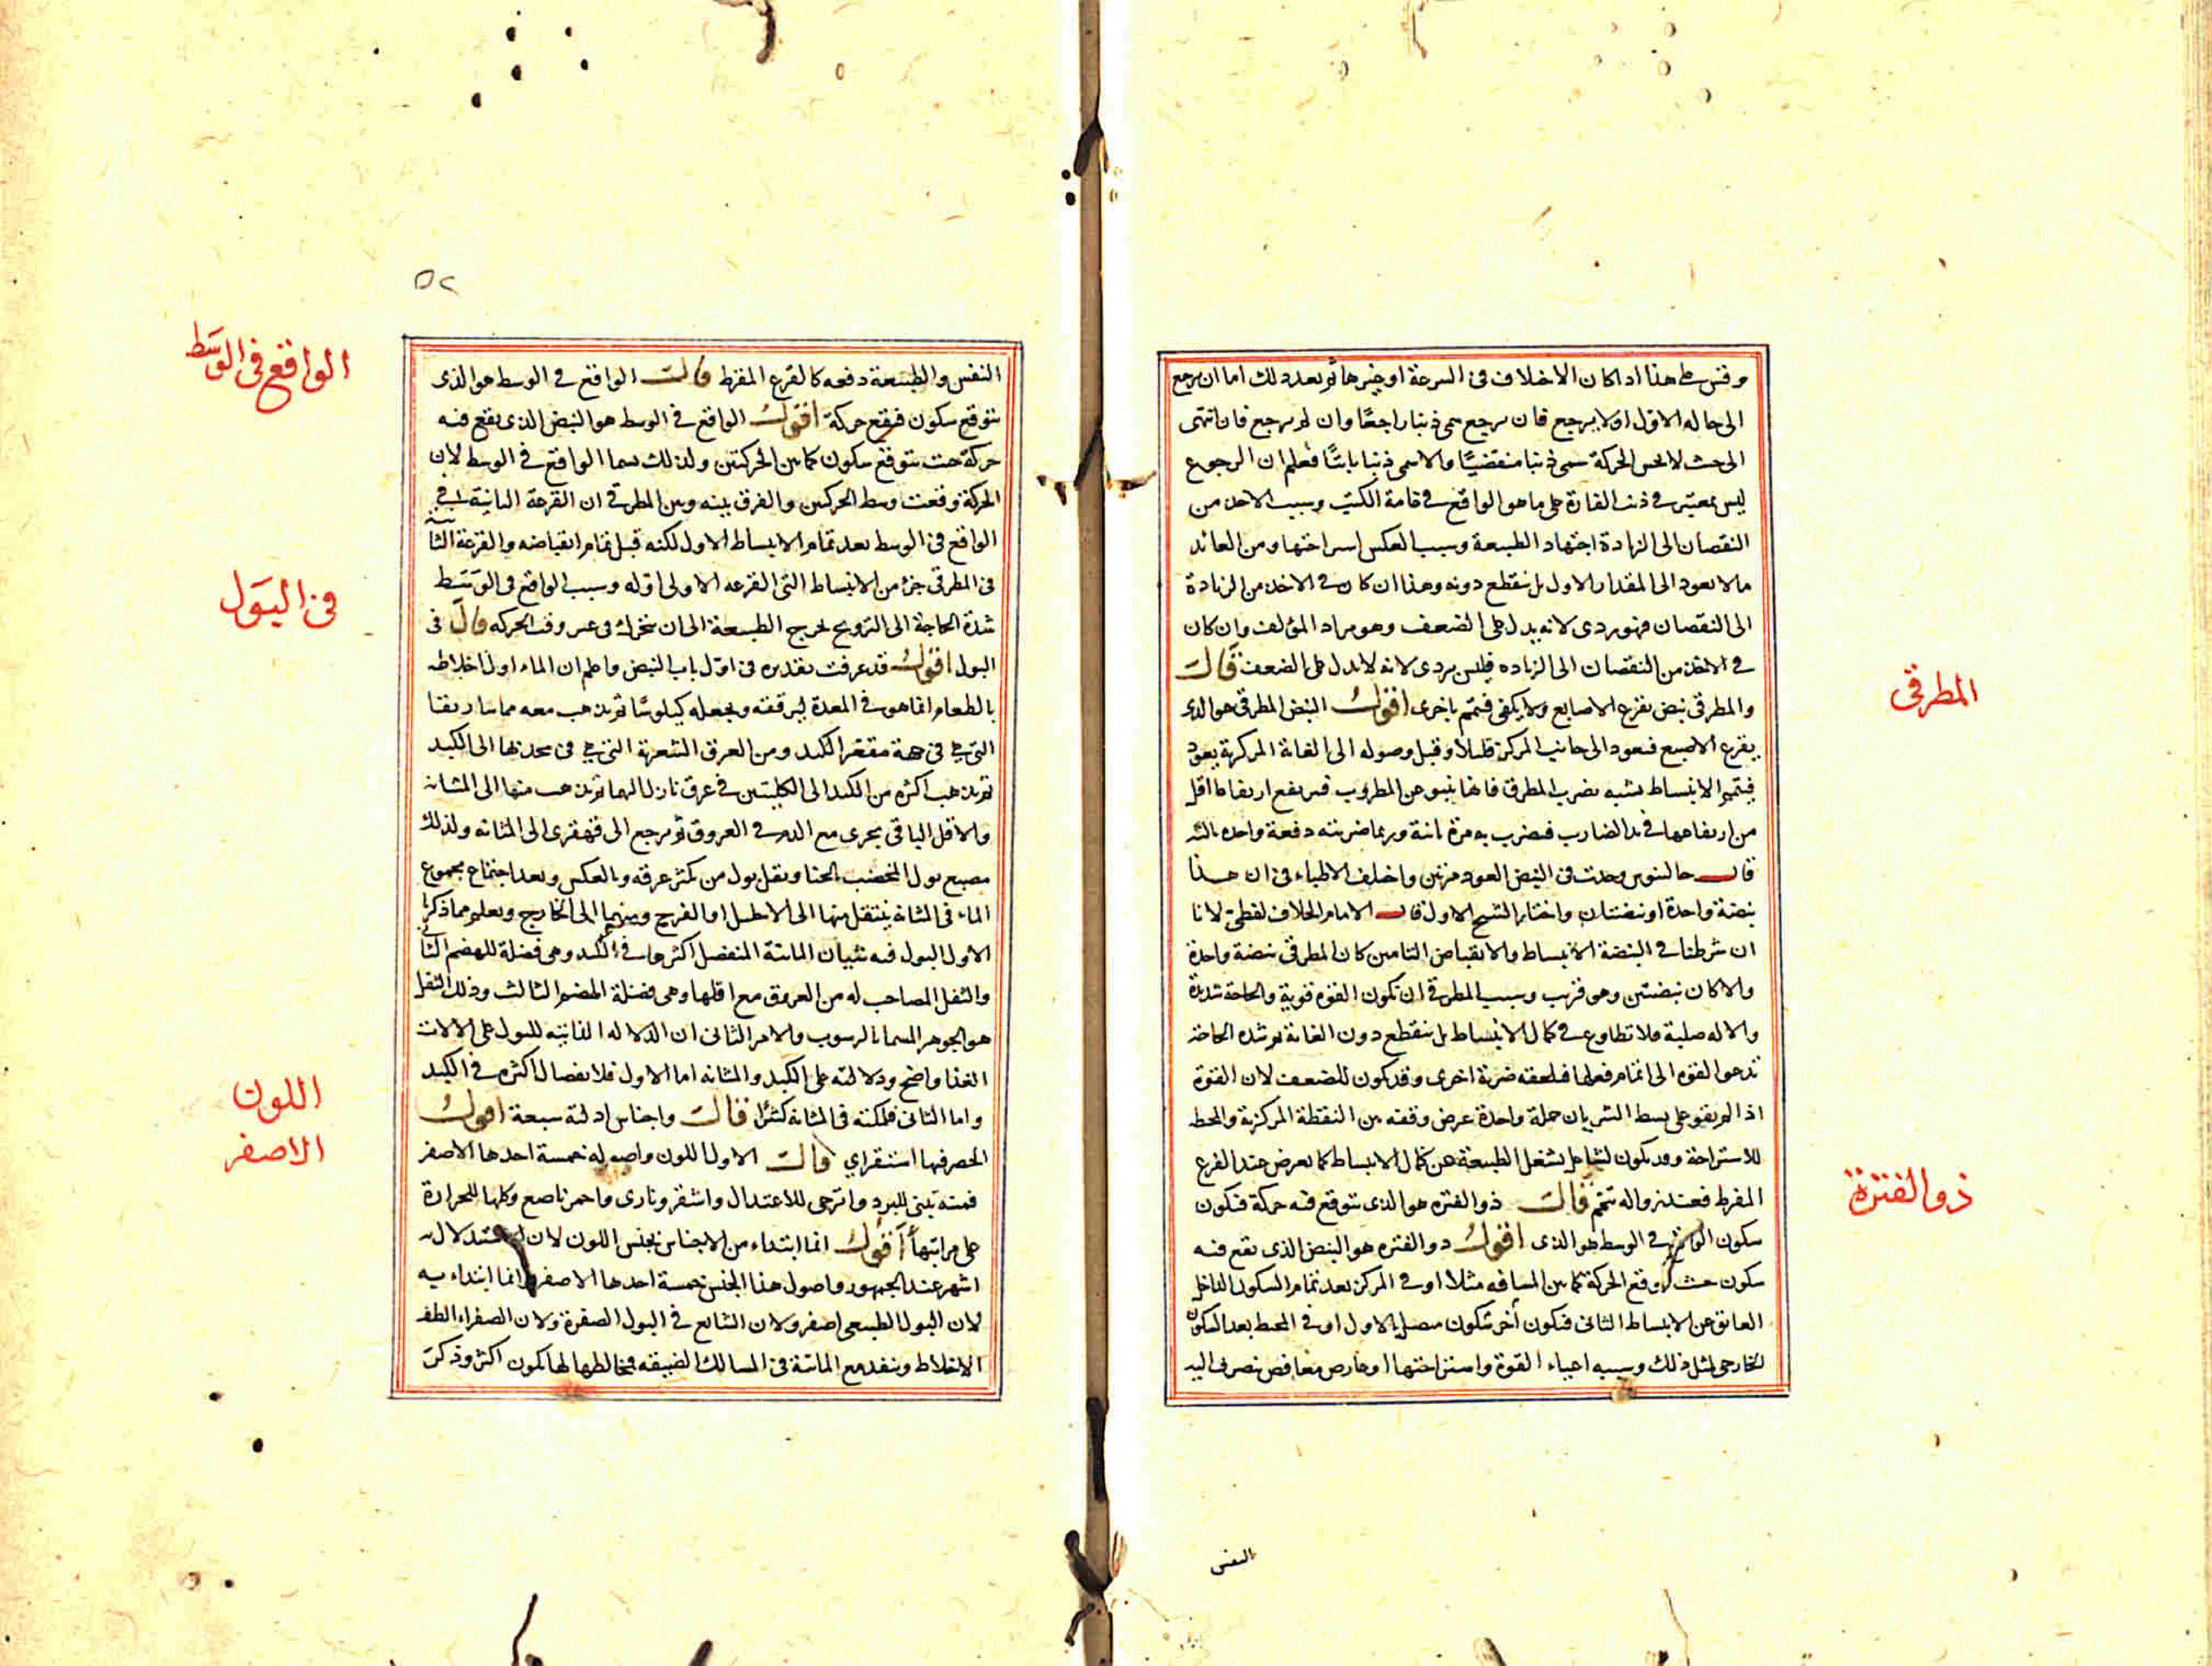 وقس على هذا اذا كان الاختلاف فى السرعة او غيرها ثم بعد ذلك اما ان يرجع
الى حاله الاول او لا يرجع فان يرجع سمى ذنبا راجعًا وان لم يرجع فان انتهى
الى حيث لا يحس الحركة سمى ذنبا منقضيًا والا سمى ذنبا ثابتًا فعلم ان الرجوع
ليس بمعتبر فى ذنب الفارة على ما هو الواقع فى عامة الكتب وسبب الاخذ من
النقصان الى الزيادة اجتهاد الطبيعة وسبب العكس استراحتها ومن العائد
ما لا يعود الى المقدار الاول بل ينقطع دونه وهذا ان كان فى الاخذ من الزيادة
الى النقصان فهو ردى لانه يدل على الضعف وهو مراد المؤلف وان كان
فى الاخذ من النقصان الى الزياده فليس بردى لانه لا يدل على الضعف قال
المطرقى
والمطرقى نبض يقرع الاصابع ولا يكفى فيتم باخرى اقول النبض المطرقى هو الذى
يقرع الاصبع فيعود الى جانب المركز قليلا وقبل وصوله الى الغاية المركزية يعود
فيتم الانبساط يشبه بضرب المطرق فانها ينبو عن المطروب فيرتفع ارتفاعا اقل
من ارتفاعها فى يد الضارب فيضرب به مرة ثانية وربما ضربته دفعة واحده ثالثه
قال جالينوس وجدت فى النبض العود مرتين واختلف الاطباء فى ان هذا
نبضة واحدة او نبضتان واختار الشيخ الاول قال الامام الخلاف لفظى لانا
ان شرطنا فى النبضة الانبساط والانقباض التامين كان المطرقى نبضة واحدة
والا كان نبضتين وهو قريب وسبب المطرقى ان تكون القوة قوية والحاجة شديدة
والاله صلبة فلا تطاوع فى كمال الانبساط بل ينقطع دون الغاية ثم شده الحاجة
تدعوا القوه الى اتمام فعلها فيلحقه ضربة اخرى وقد يكون للضعف لان القوة
اذا لم يقو على بسط الشريان حملة واحدة عرض وقفه بين النقطة المركزية والمحيط
للاستراحة وقد يكون لشاغل يشغل الطبيعة عن كمال الانبساط كما يعرض عند الفزع
ذو الفترة
المفرط فعند زواله تتم قال ذو الفتره هو الذى يتوقع فيه حركة فيكون
سكون الواقع فى الوسط هو الذى اقول ذو الفتره هو النبض الذى يقع فيه
سكون حيث يتوقع الحركة كما بين المسافه مثلا او فى المركز بعد تمام السكون الداخل
العائق عن الانبساط الثانى فيكون آخر سكون متصل بالاول او فى المحيط بعد السكون
الخارجى لمثل ذلك وسببه اعياء القوة واستراحتها او عارض مغافص يتصرف اليه
النفس
٥٢
الواقع فى الوسط
النفس والطبيعة دفعه كالفزع المفرط قال الواقع فى الوسط هو الذى
يتوقع سكون فيقع حركة اقول الواقع فى الوسط هو النبض الذى يقع فيه
حركة حيث يتوقع سكون كما بين الحركتين ولذلك يسما الواقع فى الوسط لان
الحركة وقعت وسط الحركتين والفرق بينه وبين المطرقى ان القرعة الثانية فى
الواقع فى الوسط بعد تمام الانبساط الاول لكنه قبل تمام انقباضه والقرعة الثانية
فى المطرقى جزء من الانبساط التى القرعه الاولى اوله وسبب الواقع فى الوسط
فى البول
شدة الحاجة الى الترويح يحرج الطبيعة الى ان تتحرك فى غير وقت الحركه قال فى
البول اقول قد عرفت تقديره فى اول باب النبض واعلم ان الماء اول اختلاطه
بالطعام انما هو فى المعدة ليرققه ويجعله كيلوسًا ثم يذهب معه ماساريقا
التى هى فى جهة مقعر الكبد ومن العرق الشعرية التى هى فى محدبها الى الكبد
ثم يذهب اكثره من الكبد الى الكليتين فى عرق نازل اليهما ثم يذهب منها الى المثانه
والاقل الباقى يجرى مع الدم فى العروق ثم يرجع الى قهقرى الى المثانه ولذلك
يصبع بول المخضب بالحنا ويقل بول من يكثر عرقه وبالعكس وبعد اجتماع مجموع
الماء فى المثانه ينتقل منها الى الاحليل او الفرج ومنهما الى الخارج ويعلم مما ذكرنا
الاول البول فيه شيئان المائية المنفصل اكثرها فى الكبد وهى فضلة للهضم الثانى
والثفل المصاحب له من العروق مع اقلها وهى فضلة الهضم الثالث وذلك الثفل
هو الجوهر المسما بالرسوب والامر الثانى ان الدلاله الذاتية للبول على الالات
الغذا واضح ودلالته على الكبد والمثانه اما الاول فلانفصال اكثره فى الكبد
واما الثانى فلمكثه فى المثانه كثيرًا قال واجناس ادلته سبعة اقول
اللون
الاصفر
الحصر فيها استقراي قال الاول اللون واصوله خمسة احدها الاصفر
فمنه تبنى للبرد واترجى للاعتدال واشقر ونارى واحمر ناصع وكلها للحرارة
على مراتبها اقول انما ابتداء من الاجناس بجنس اللون لان الاستدلال به
اشهر عند الجمهور واصول هذا الجنس خمسة احدها الاصفر وانما ابتداء به
لان البول الطبيعى اصفر ولان الشايع فى البول الصفرة ولان الصفراء الطف
الاخلاط وينفد مع المائية فى المسالك الضيقه فيخالطها لها تكون اكثر وذكر